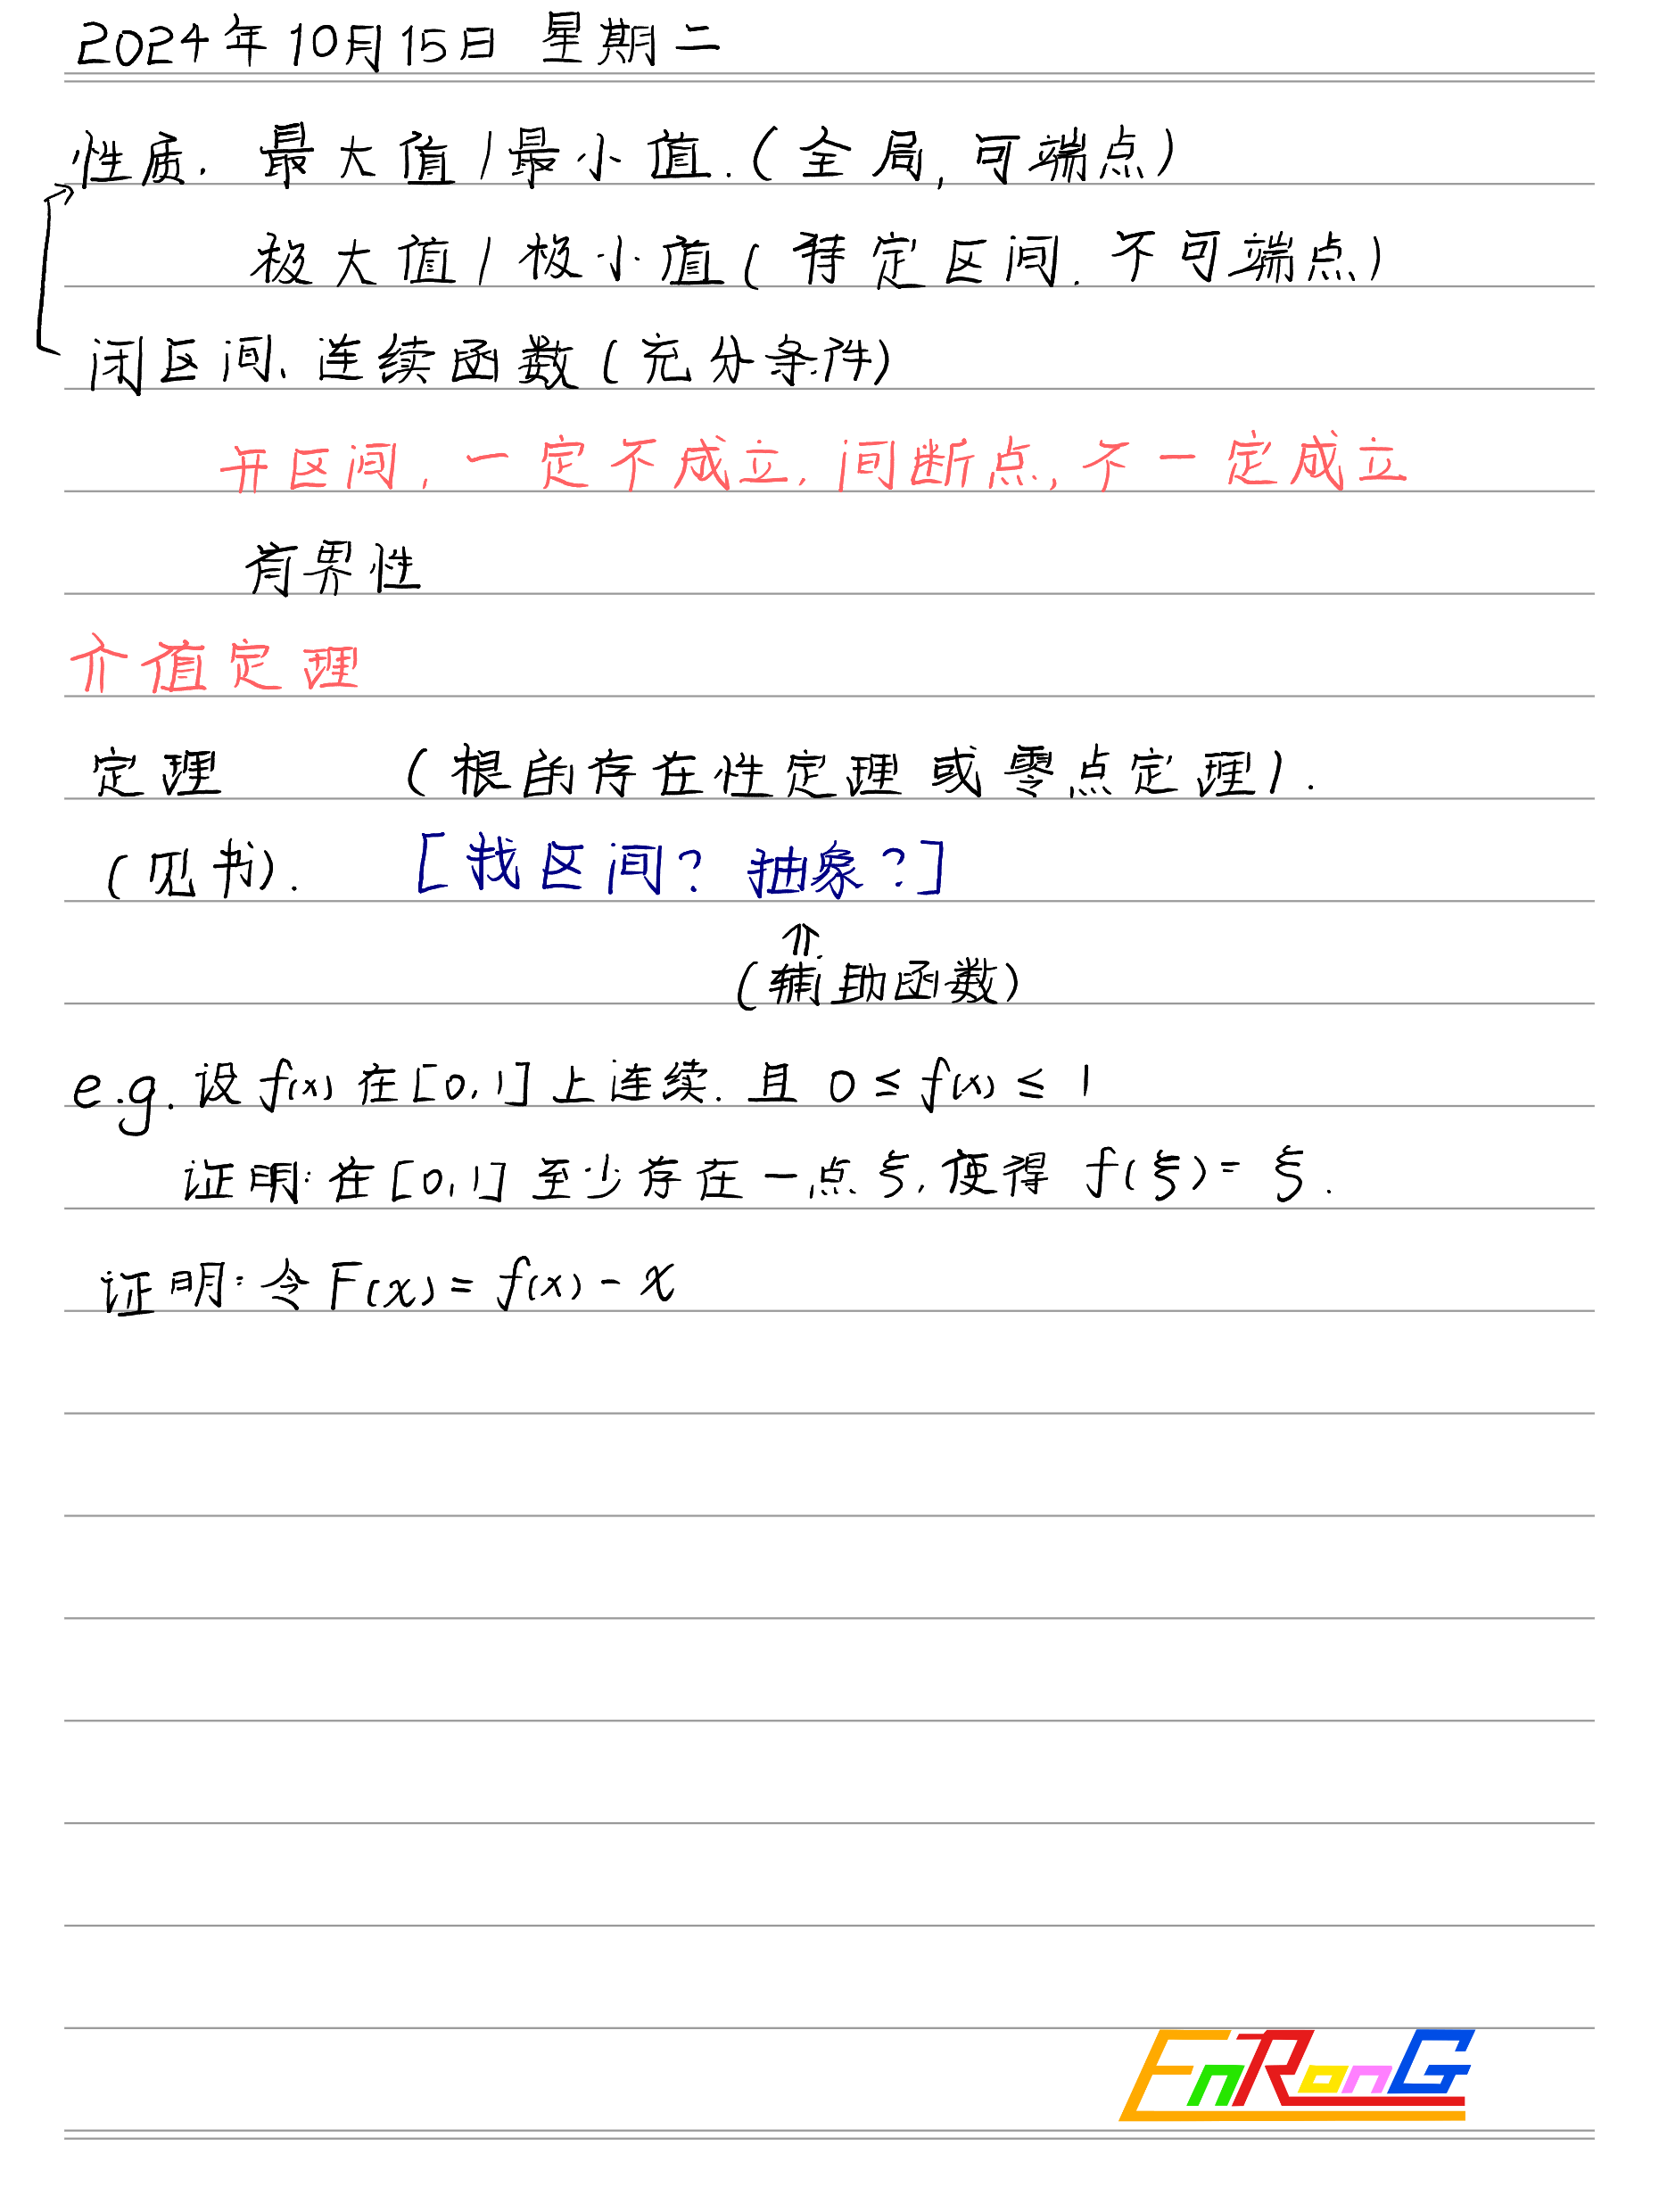 2024年10月15日 星期二
性质. 最大值/最小值.(全局,可端点)
极大值/极小值(特定区间.不可端点)
闭区间、连续函数(充分条件)
开区间,一定不成立.间断点,不一定成立
有界性
介值定理
定理 (根的存在性定理或零点定理).
(见书). [找区间? 抽象?]
⇑
(辅助函数)
e.g. 设f(x)在[0,1]上连续.且 0≤f(x)≤1
证明:在[0,1]至少存在一点ξ,使得 f(ξ)=ξ.
证明:令F(x)=f(x)-x
EnRonG